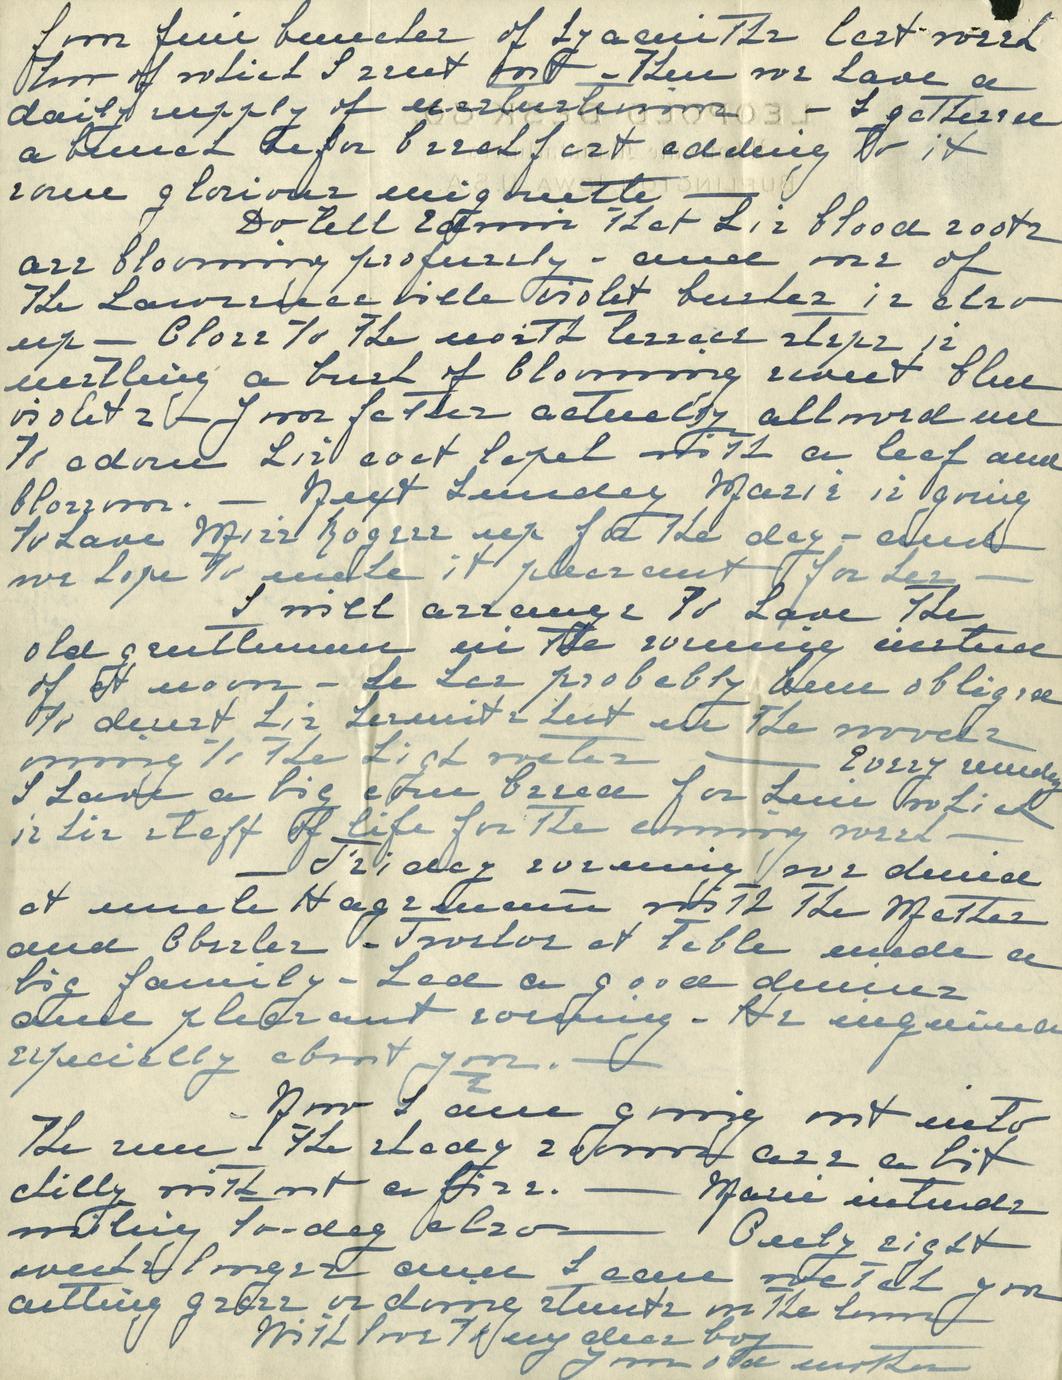 four fine bunches of Hyacinths last week
two of which I sent out - Then we have a
daily supply of nasturtiums - I gathered
a bunch before breakfast adding to it
some glorious mignonette —
Do tell Edwin that his blood roots
are blooming profusely - and one of
the Lawrenceville violet bushes is also
up — Close to the north terrace steps is
nestling a bush of blooming sweet blue
violets — Your father actually allowed me
to adorn his coat lapel with a leaf and
blossom. — Next Sunday Marie is going
to have Miss Rogers up for the day - and
we hope to make it pleasant for her —
I will arrange to have the
old gentleman in the evening instead
of at noon - he has probably been obliged
to desert his hermits hut in the woods
owing to the high water — Every sunday
I have a big corn bread for him which
is his staff of life for the coming week —
— Friday evening we dined
at uncle Hagemann with the Mather
and Eberles - Twelve at table made a
big family - had a good dinner
and pleasant evening - He inquired
especially about you. —
- Now I am going out into
the sun - The shady rooms are a bit
chilly without a fire. — Marie intends
writing to-day also — Only eight
weeks longer and I can watch you
cutting grass or doing stunts on the lawn
With love to my dear boy
Your old mother
LEOPOLD DESK CO.
BURLINGTON, IOWA U.S.A.